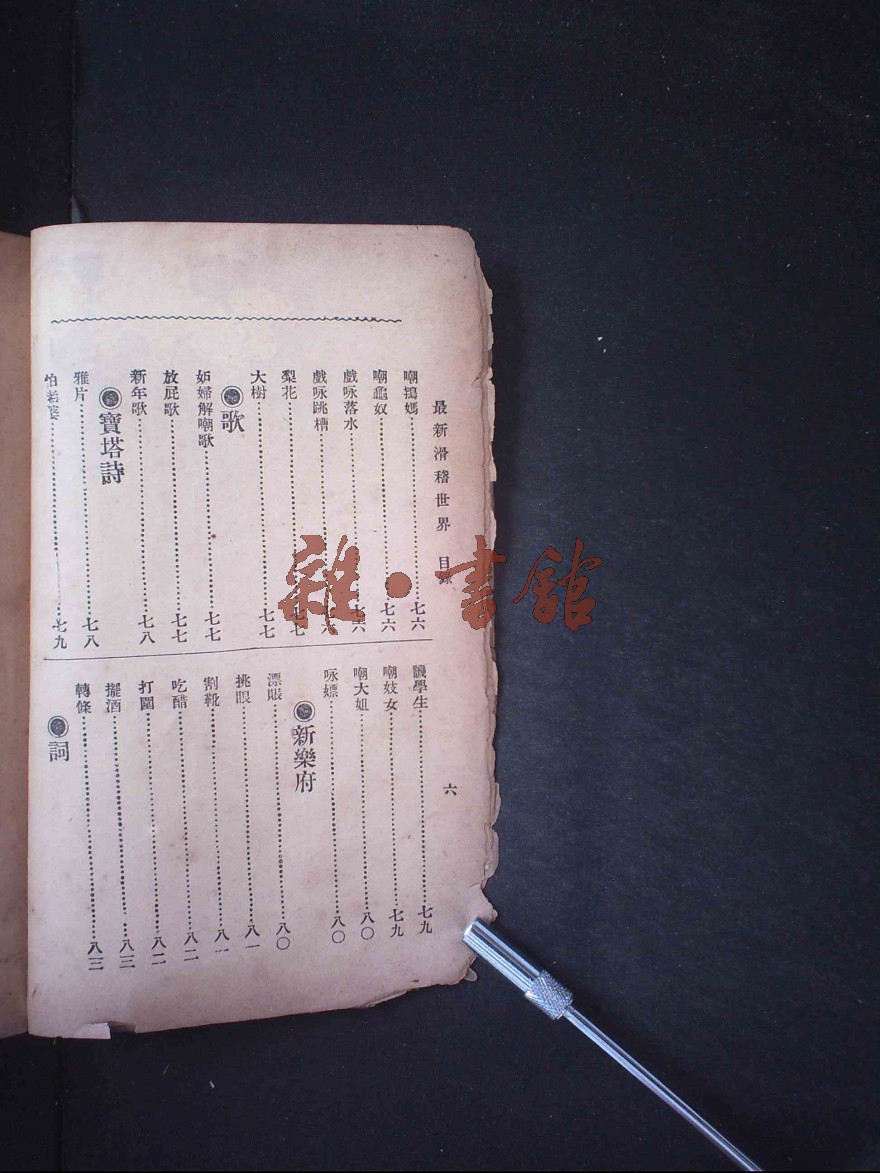 最新滑稽世界 目錄
六
嘲鴇媽……七六
嘲龜奴……七六
戲咏落水……七六
戲咏跳槽……七六
梨花……七七
大樹……七七
歌
妒婦解嘲歌……七七
放屁歌……七七
新年歌……七八
寶塔詩
雅片……七八
怕老婆……七九
譏學生……七九
嘲妓女……七九
嘲大姐……八〇
咏嫖……八〇
新樂府
漂賬……八〇
挑眼……八一
割靴……八一
吃醋……八二
打圍……八二
擺酒……八三
轉條……八三
詞
雜·書館